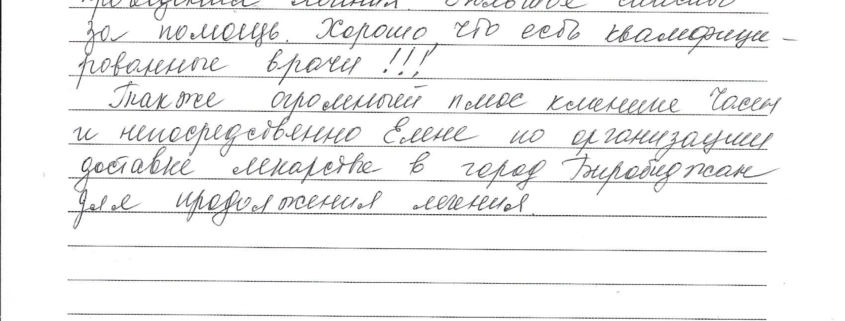 лечения. Большое спасибо
за помощь. Хорошо, что есть квалифици-
рованные врачи!!!
Также огромный плюс клинике Часы
и непосредственно Елене по организации
доставке лекарства в город Биробиджан
для продолжения лечения.